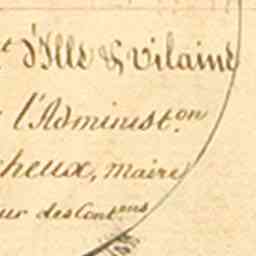 t d'Ille & Vilaine
l'Administ.on
cheux, maire
ur des Cont.ons